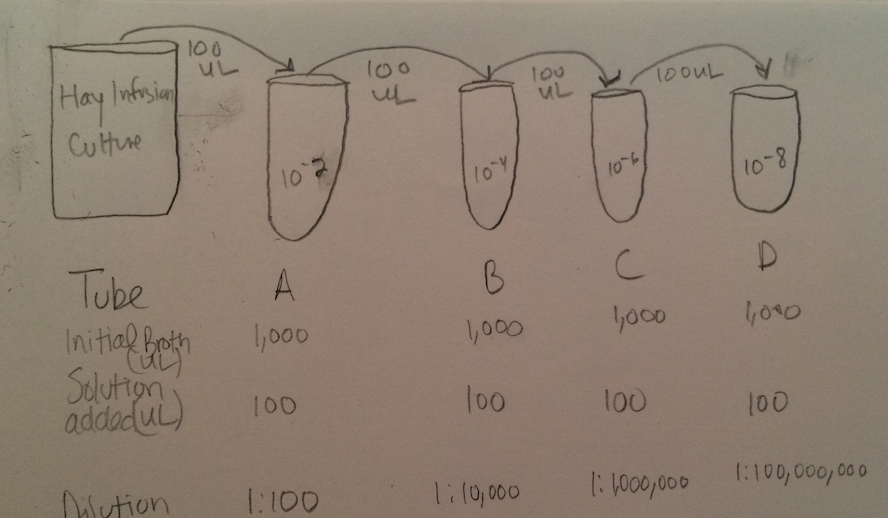 100
UL
100
UL
100
UL
100UL
Hay Infusion
Culture
10⁻²
10⁻⁴
10⁻⁶
10⁻⁸
Tube A B C D
Initial Broth (UL) 1,000 1,000 1,000 1,000
Solution
added(UL) 100 100 100 100
Dilution 1:100 1:10,000 1:1,000,000 1:100,000,000